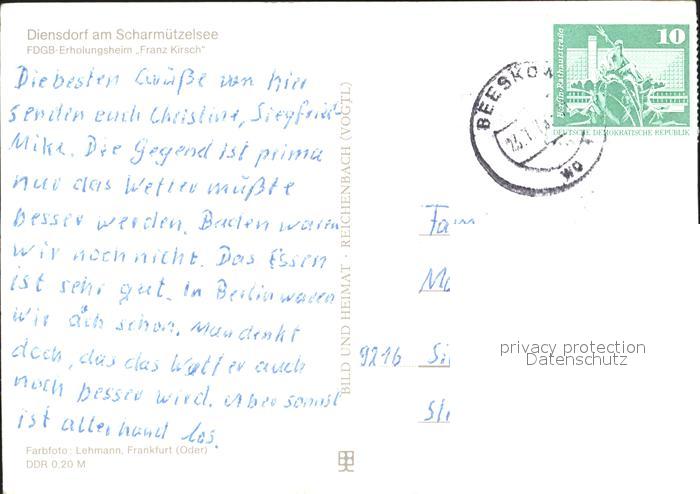 Diensdorf am Scharmützelsee
FDGB-Erholungsheim „Franz Kirsch“
Die besten Grüße von hier
senden euch Christine, Siegfried
Mike. Die Gegend ist prima
nur das Wetter müßte
besser werden. Baden waren
wir noch nicht. Das Essen
ist sehr gut. In Berlin waren
wir och schon. Man denkt
doch, das das Wetter auch
noch besser wird. Aber sonst
ist allerhand los.
Farbfoto: Lehmann, Frankfurt (Oder)
DDR 0,20 M
BILD UND HEIMAT · REICHENBACH (VOGTL)
10
Berlin-Rathausstraße
DEUTSCHE DEMOKRATISCHE REPUBLIK
BEESKOW
Fam
9216
privacy protection
Datenschutz